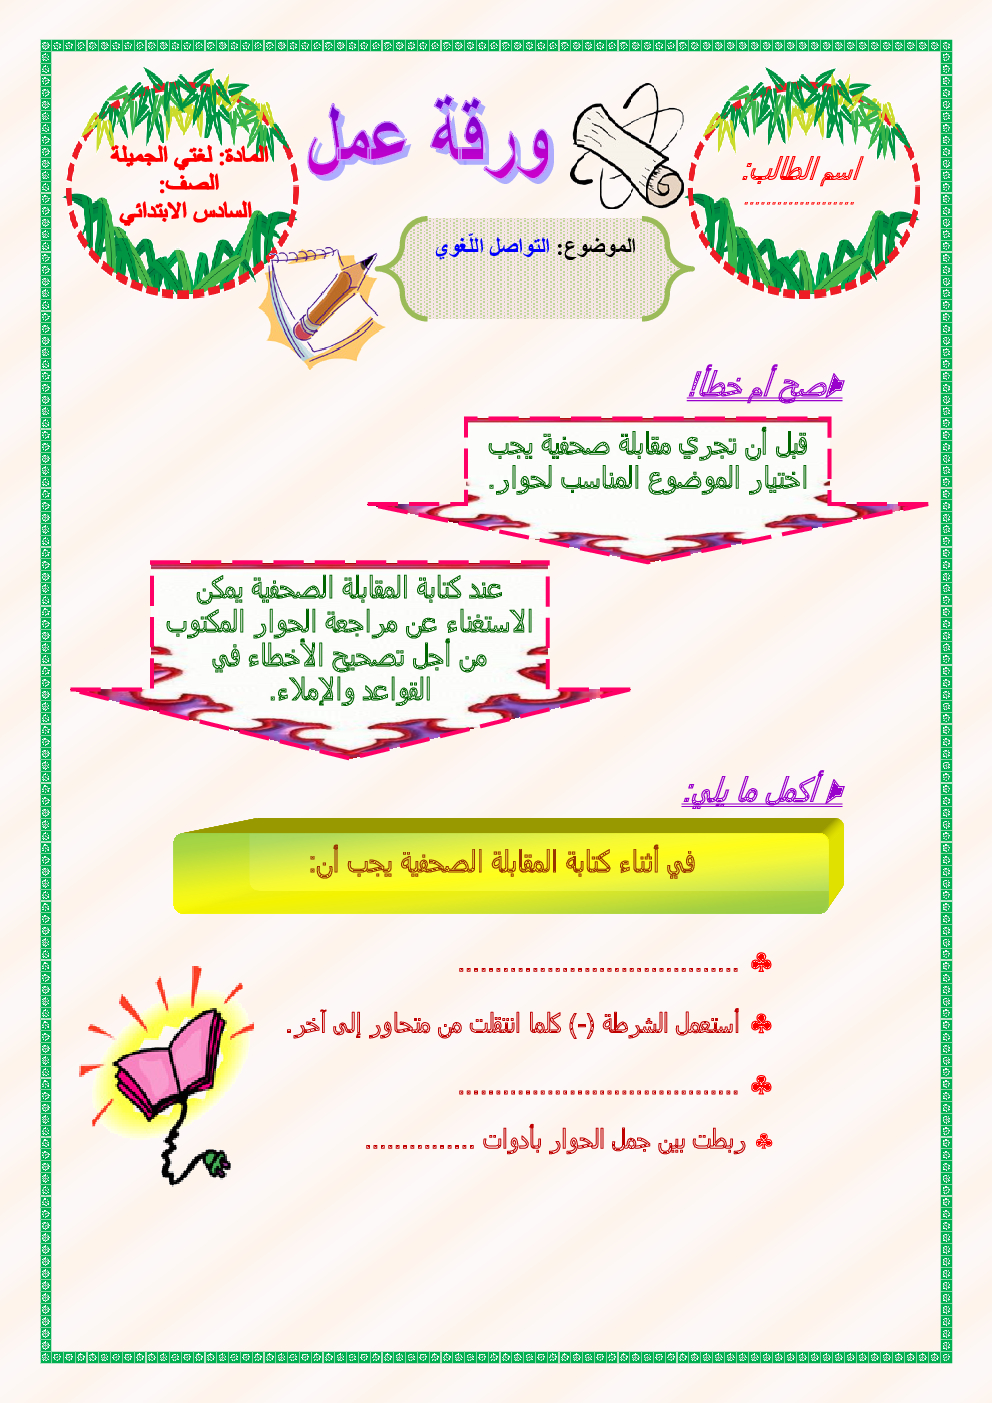 ورقة عمل
اسم الطالب:
....................
المادة: لغتي الجميلة
الصف:
السادس الابتدائي
الموضوع: التواصل اللّغوي
صح أم خطأ!
قبل أن تجري مقابلة صحفية يجب
اختيار الموضوع المناسب لحوار.
عند كتابة المقابلة الصحفية يمكن
الاستغناء عن مراجعة الحوار المكتوب
من أجل تصحيح الأخطاء في
القواعد والإملاء.
أكمل ما يلي:
في أثناء كتابة المقابلة الصحفية يجب أن:
♣ ......................................
♣ أستعمل الشرطة (-) كلما انتقلت من متحاور إلى آخر.
♣ ......................................
♣ ربطت بين جمل الحوار بأدوات ...............